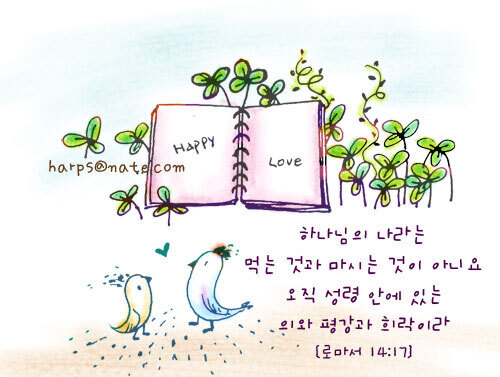 Happy
Love
harps@nate.com
하나님의 나라는
먹는 것과 마시는 것이 아니요
오직 성령 안에 있는
의와 평강과 희락이라
[로마서 14:17]